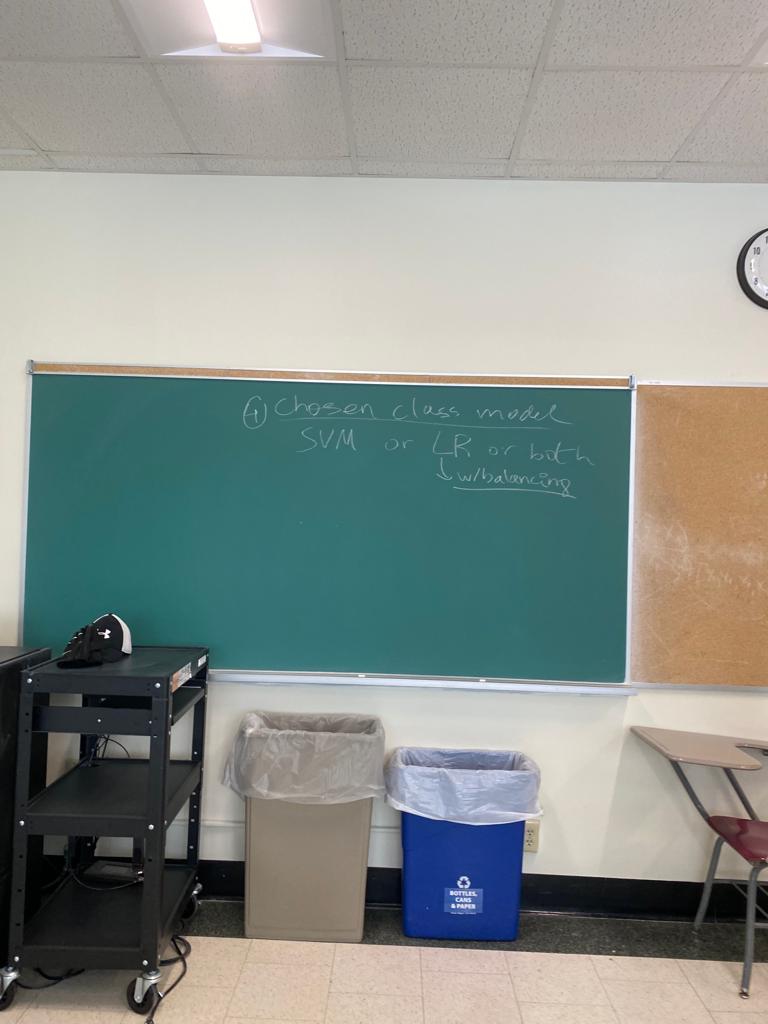 ④ Chosen class model
SVM or LR or both
↓ w/balancing
10
BOTTLES,
CANS
& PAPER